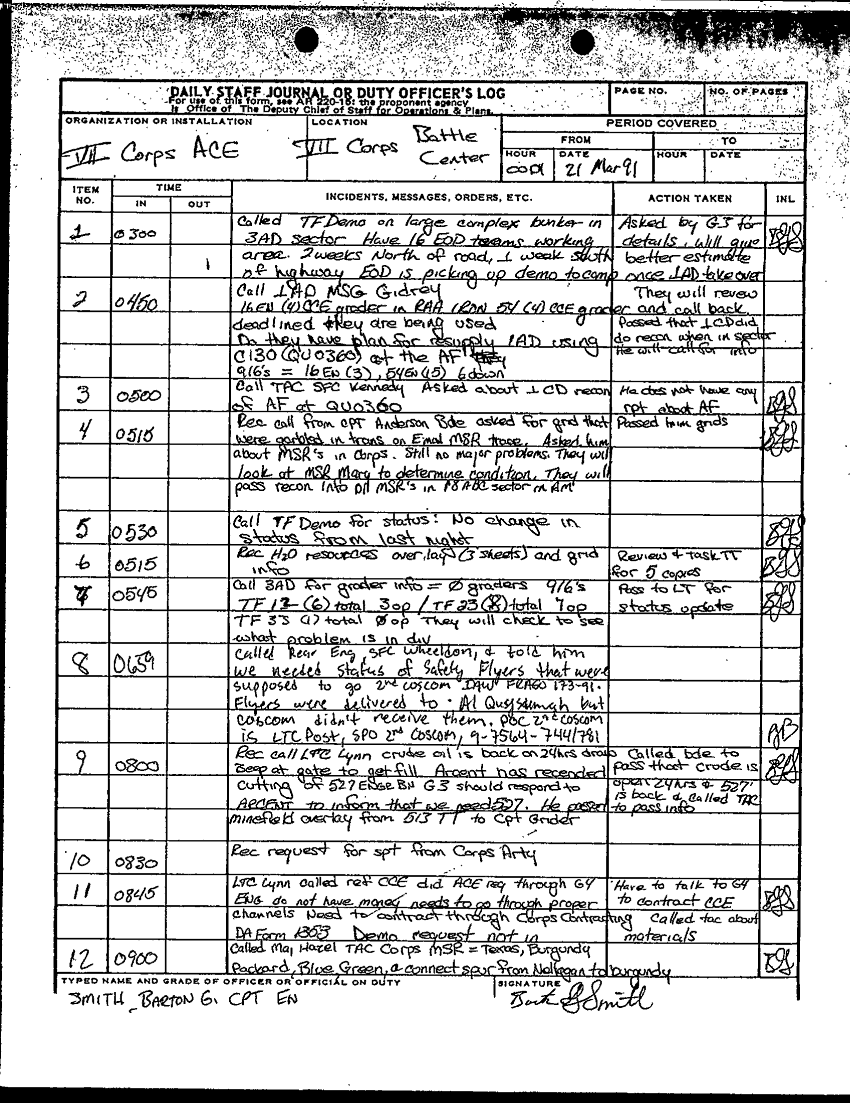 DAILY STAFF JOURNAL OR DUTY OFFICER'S LOG
For use of this form, see AR 220-15: the proponent agency
is Office of The Deputy Chief of Staff for Operations & Plans.
PAGE NO.
NO. OF PAGES
ORGANIZATION OR INSTALLATION
VII Corps ACE
LOCATION
VII Corps Battle
Center
PERIOD COVERED
FROM
TO
HOUR
0001
DATE
21 Mar 91
HOUR
DATE
ITEM NO.
TIME
IN
OUT
INCIDENTS, MESSAGES, ORDERS, ETC.
ACTION TAKEN
INL
1 0300 Called TF Demo on large complex bunker in Asked by G3 for
3AD sector Have 16 EOD teams working details, will give
area. 2 weeks North of road, 1 week south better estimate
of highway EOD is picking up demo to comp once 1AD take over
2 0450 Call 1AD MSG Gidrey They will revew
16 EN (4) CCE grader in RAA IRON 54 (4) CCE grader and call back.
deadlined they are being used Passed that 1CD did
Do they have plan for resupply 1AD using do recon when in sector
C130 (QU0360) at the AF He will call for info
916's = 16 EN (3), 54EN (5) 6 down
3 0500 Call TAC SFC Kennedy Asked about 1 CD recon He does not have any
of AF at QU0360 rpt about AF
4 0515 Rec call from CPT Anderson Bde asked for grid that Passed him grids
were garbled in trans on Emal MSR trace. Asked him
about MSR's in Corps. Still no major problems. They will
look at MSR Mary to determine condition. They will
pass recon info on MSR's in 18 ABC sector in AM
5 0530 Call TF Demo for status: No change in
status from last night
6 0515 Rec H2O resources overlay (3 sheets) and grid Review + task TT
info for 5 copies
7 0545 Call 3AD for grader info = Ø graders 916's Pass to LT for
TF 12 (6) total 3 op / TF 23 (8) total 7 op status update
TF 33 (1) total Ø op They will check to see
what problem is in div
8 0659 Called Rear Eng, SFC Wheeldon, & told him
we needed status of Safety Flyers that were
supposed to go 2nd COSCOM IAW FRAGO 173-91.
Flyers were delivered to Al Quysumah but
COSCOM didn't receive them. POC 2nd COSCOM
is LTC Post, SPO 2nd COSCOM, 9-7564-7441/781
9 0800 Rec call LTC Lynn crude oil is back on 24hrs Called bde to
Beep at gate to get fill. Arcent has recended pass that crude is
cutting of 527 ENGR BN G3 should respond to open 24hrs & 527
ARCENT to inform that we need 527. He passed is back & called TAC
minefield overlay from 513 TT to Cpt Grider to pass info
10 0830 Rec request for spt from Corps Arty
11 0845 LTC Lynn called ref CCE did ACE req through G4 Have to talk to G4
ENG do not have money needs to go through proper to contract CCE
channels Need to contract through Corps Contracting Called tac about
DA Form Demo request not in materials
12 0900 Called Maj Hazel TAC Corps MSR = Texas, Burgundy
Packard, Blue, Green, a connect spur from to burgundy
TYPED NAME AND GRADE OF OFFICER OR OFFICIAL ON DUTY
SMITH, BARTON G. CPT EN
SIGNATURE
Bart G Smith